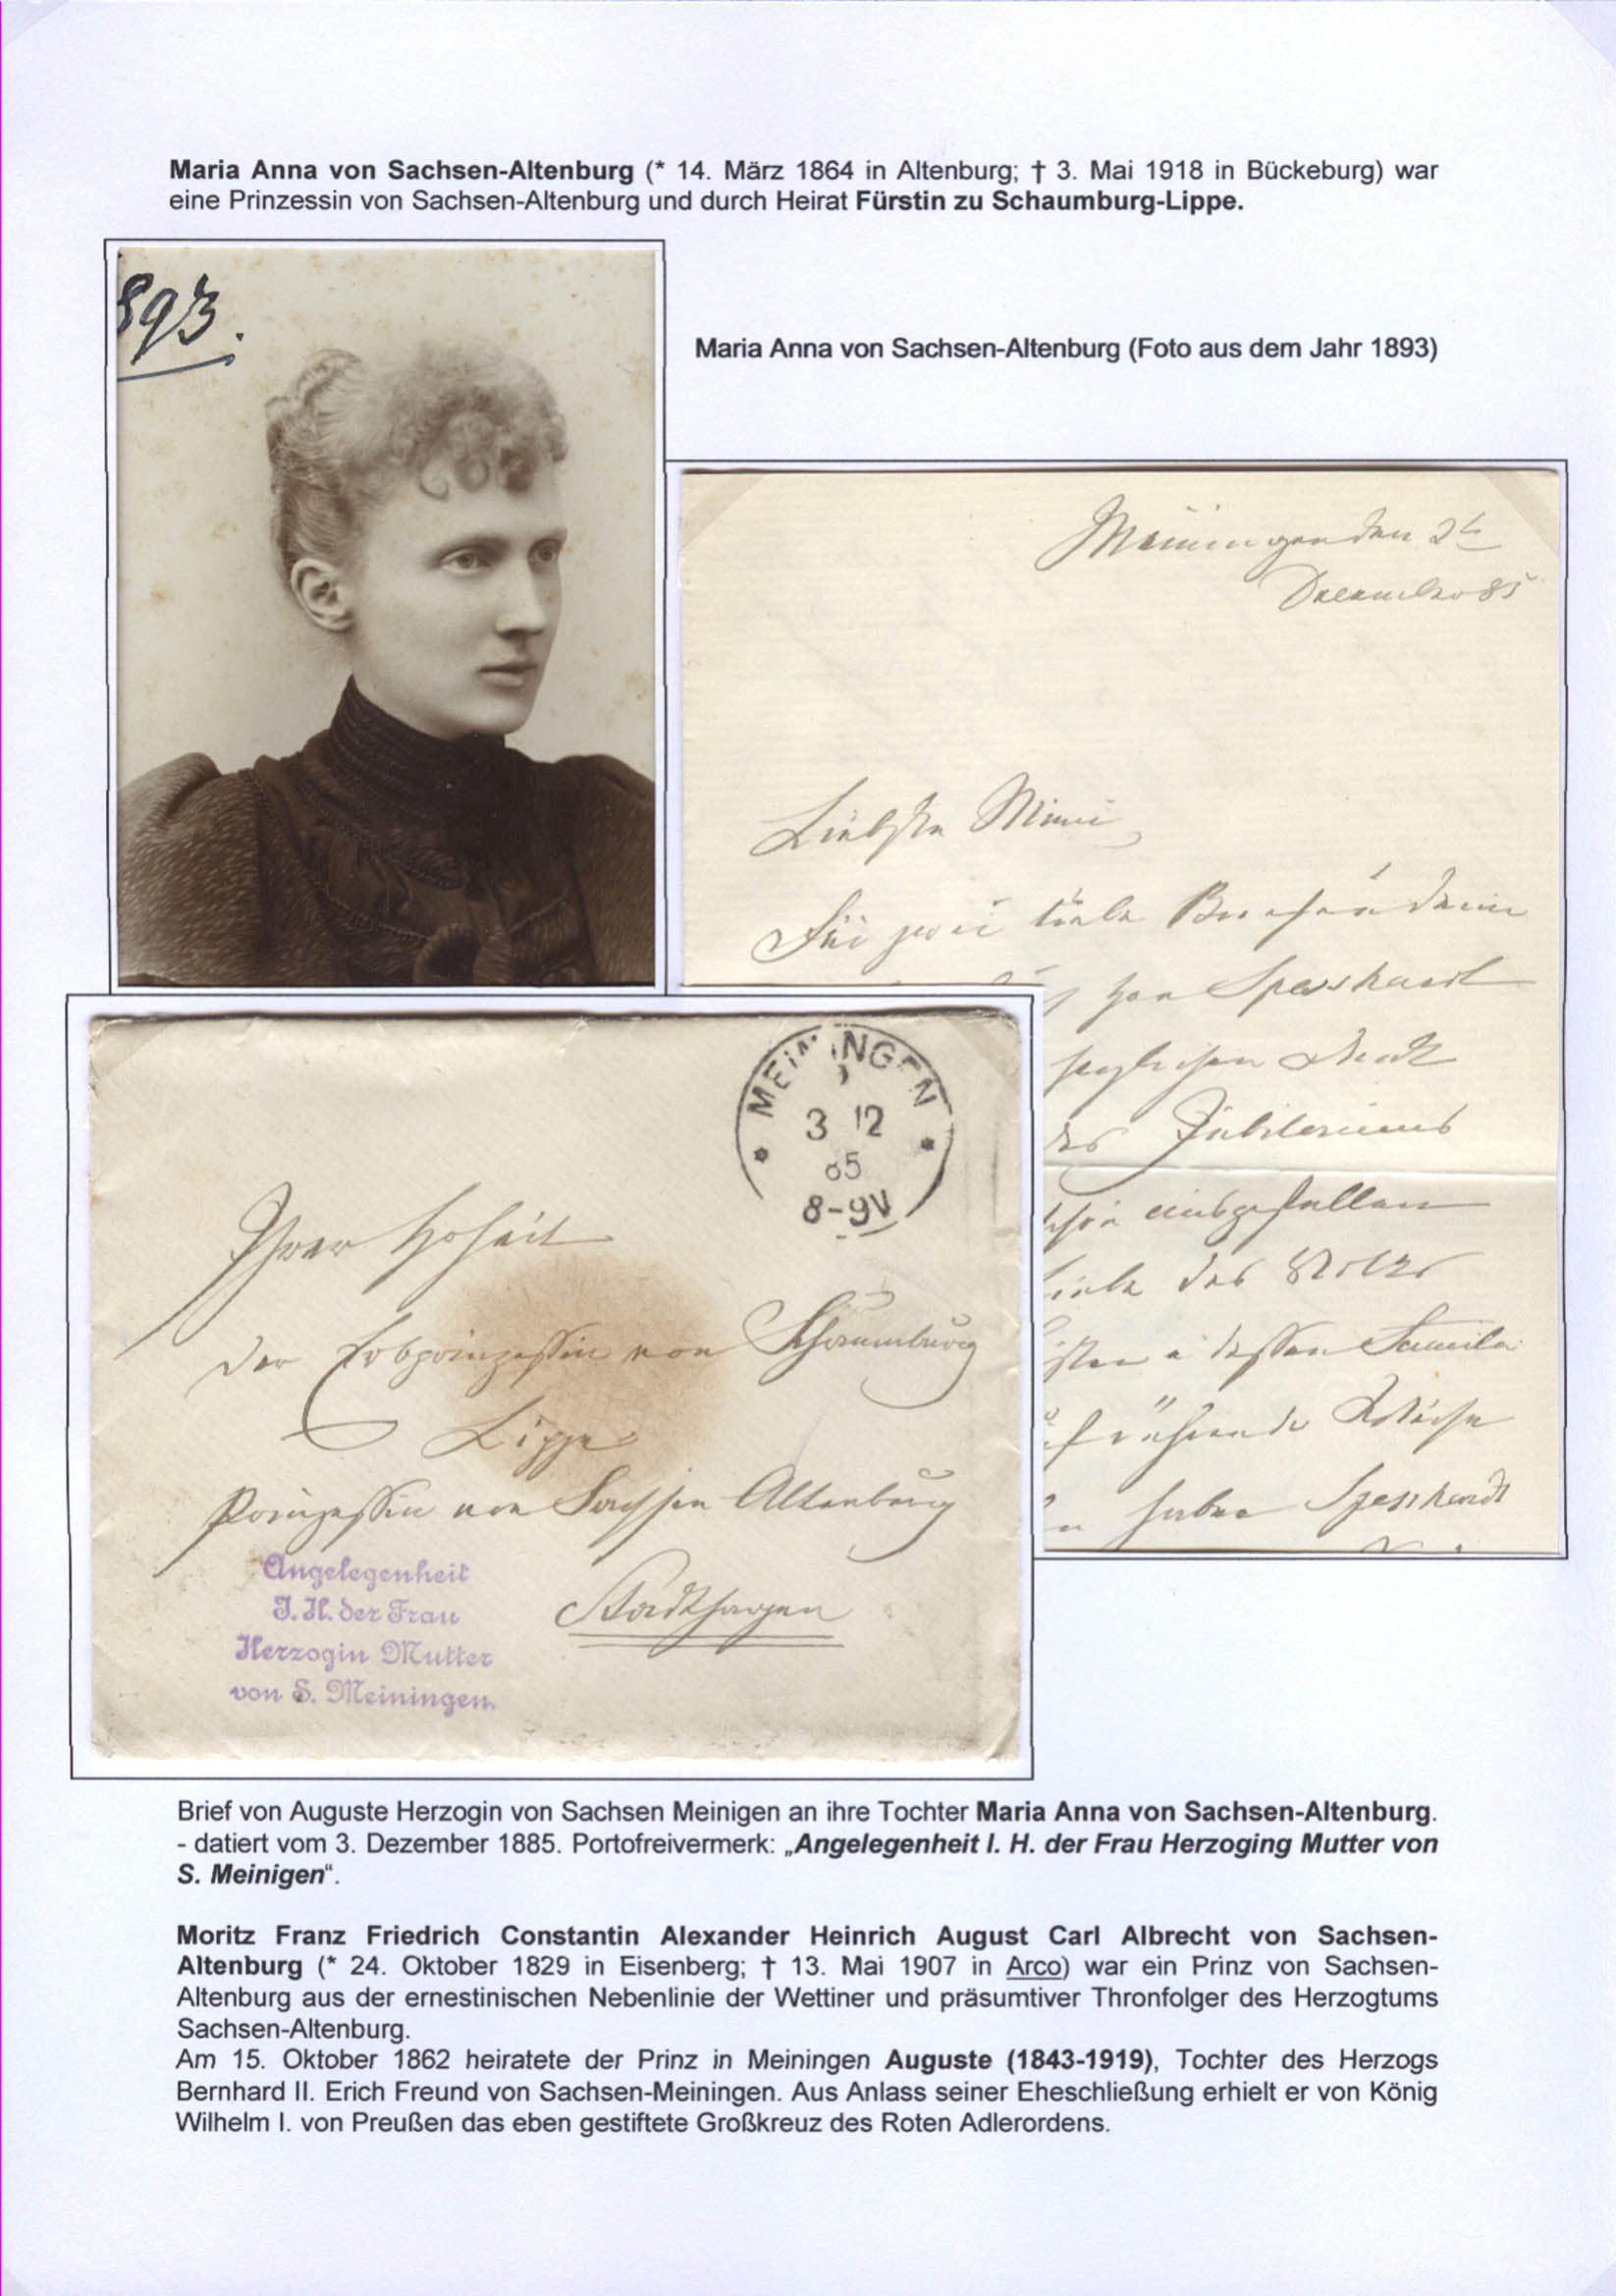 Maria Anna von Sachsen-Altenburg (* 14. März 1864 in Altenburg; † 3. Mai 1918 in Bückeburg) war
eine Prinzessin von Sachsen-Altenburg und durch Heirat Fürstin zu Schaumburg-Lippe.
893.
Maria Anna von Sachsen-Altenburg (Foto aus dem Jahr 1893)
Meiningen den 2t
December 85
Liebste Mimi
Für zwei liebe Briefe
von Spesshardt
des Jubiläums
ausgefallen
des
dessen Familie
haben Spesshardt
MEININGEN
3 12
85
8-9V
Ihrer Hoheit
der Erbprinzessin von Schaumburg
Lippe
Prinzessin von Sachsen Altenburg
Stadthagen
Angelegenheit
J. H. der Frau
Herzogin Mutter
von S. Meiningen.
Brief von Auguste Herzogin von Sachsen Meinigen an ihre Tochter Maria Anna von Sachsen-Altenburg.
- datiert vom 3. Dezember 1885. Portofreivermerk: „Angelegenheit I. H. der Frau Herzoging Mutter von
S. Meinigen“.
Moritz Franz Friedrich Constantin Alexander Heinrich August Carl Albrecht von Sachsen-
Altenburg (* 24. Oktober 1829 in Eisenberg; † 13. Mai 1907 in Arco) war ein Prinz von Sachsen-
Altenburg aus der ernestinischen Nebenlinie der Wettiner und präsumtiver Thronfolger des Herzogtums
Sachsen-Altenburg.
Am 15. Oktober 1862 heiratete der Prinz in Meiningen Auguste (1843-1919), Tochter des Herzogs
Bernhard II. Erich Freund von Sachsen-Meiningen. Aus Anlass seiner Eheschließung erhielt er von König
Wilhelm I. von Preußen das eben gestiftete Großkreuz des Roten Adlerordens.